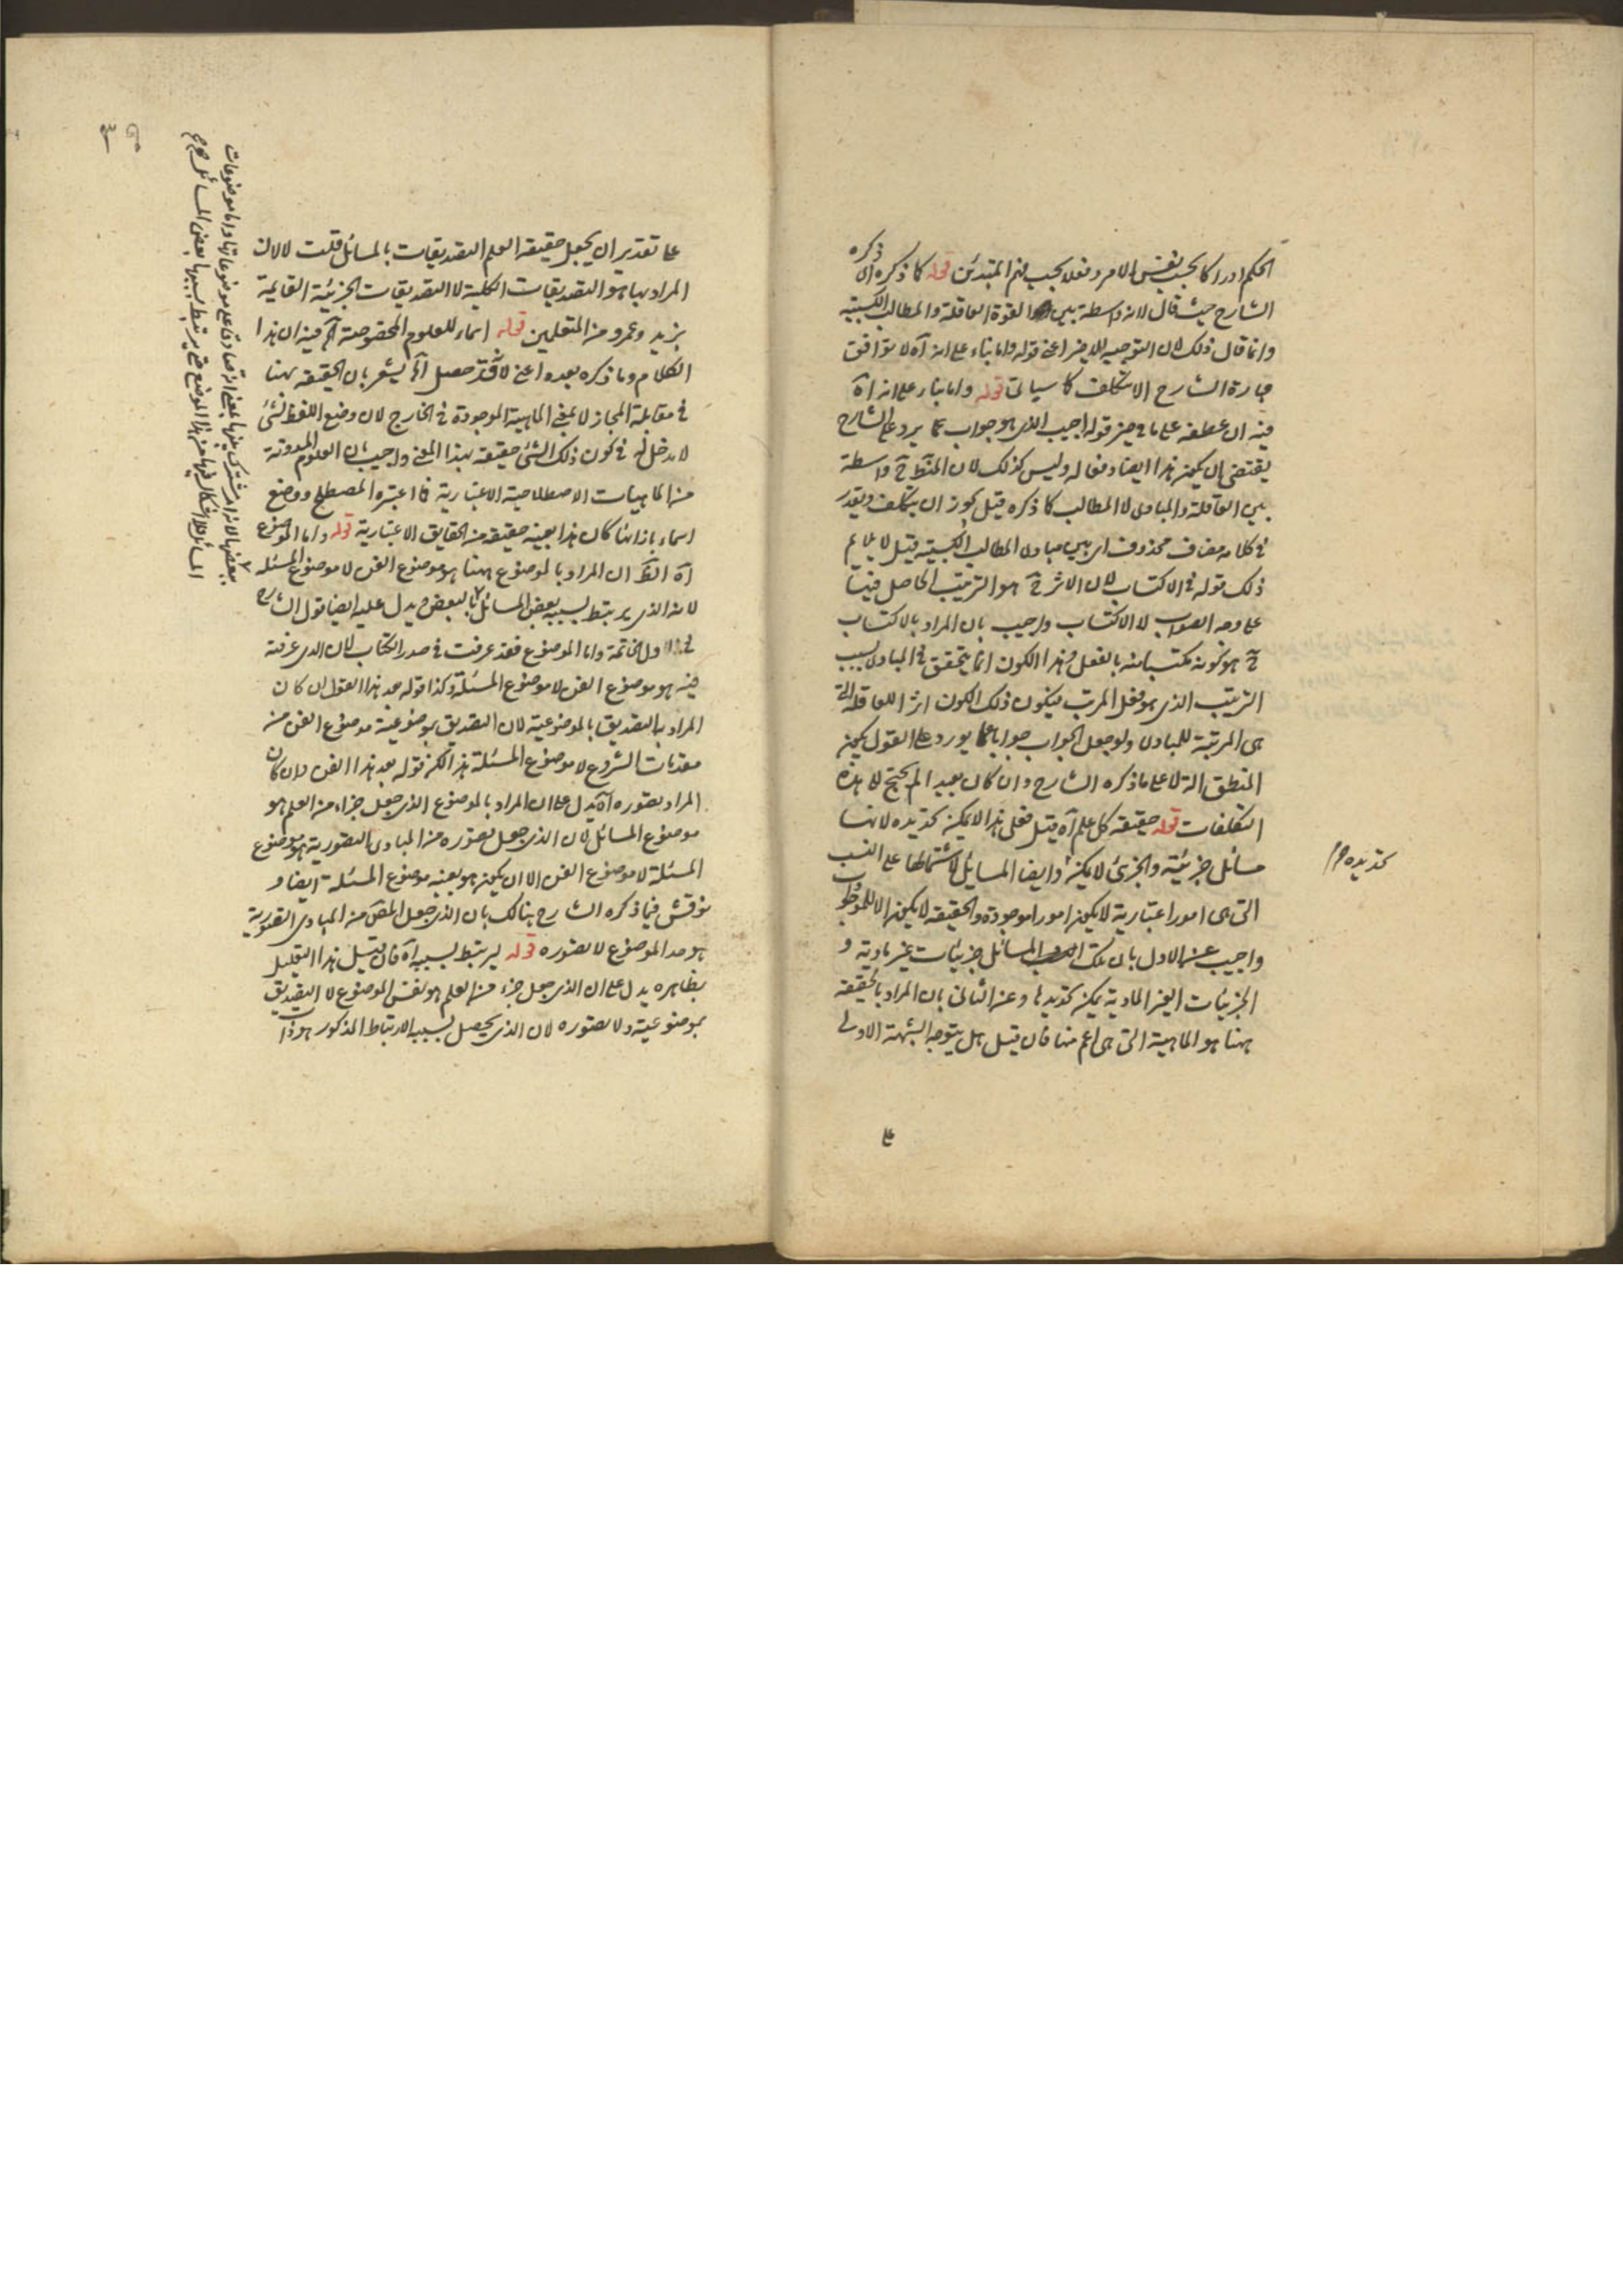 الحكم ادراكا بحسب نفس الامر وفعلا بحسب فهم المبتدئين قوله كما ذكره
الشارح حيث قال لانه واسطة بين القوة العاقلة والمطالب الكسبية
وانما قال ذلك لان التوجيه الاخير اعني قوله واما بناء على انه آه لا توافق
عبارة الشارح الا بتكلف كما سيأتي قوله واما بناء على انه آه
فيه ان عطفه على ما في حيز قوله اجيب الذي هو جواب عما يرد على الشارح
يقتضي ان يكون هذا ايضا دفعا له وليس كذلك لان المنطق ح واسطة
بين العاقلة والمبادى لا المطالب كما ذكره قيل يجوز ان يتكلف ويقدر
في كلامه مضاف محذوف اي بين مبادى المطالب الكسبية قيل لا يلايم
ذلك قوله في الاكتساب لان الاثر ح هو الترتيب الحاصل فيها
على وجه الصواب لا الاكتساب واجيب بان المراد بالاكتساب
ح هو كونه مكتسبا منه بالفعل وهذا الكون انما يتحقق في المبادى بسبب
الترتيب الذي هو فعل المرتب فيكون ذلك الكون اثر اللعاقلة التي
هي المرتبة للمبادى ولو جعل الجواب جوابا عما يورد على القول بكون
المنطق آلة لا على ما ذكره الشارح وان كان بعيدا لم يحتج الى هذه
التكلفات قوله حقيقة كل علم آه قيل فعلى هذا لا يمكن تحديده لانها
مسائل جزئية والجزئي لا يمكن وايضا المسايل لاشتمالها على النسب
تحديده
التي هي امور اعتبارية لا يكون امورا موجودة والحقيقة لا يكون الا للموجود
واجيب عن الاول بان تلك المسائل جزئيات غير مادية و
الجزئيات الغير المادية يمكن تحديدها وعن الثاني بان المراد بالحقيقة
ههنا هو الماهية التي هي اعم منها فان قيل هل يتوجه الشبهة الاولى
على
٣٩
على تقدير ان يجعل حقيقة العلم التصديقات بالمسائل قلت لا لان
المراد بها هو التصديقات الكلية لا التصديقات الجزئية القايمة
بزيد وعمرو من المتعلمين قوله اسماء للعلوم المخصوصة آه فيه ان هذا
الكلام وما ذكره بعده اعني لانه قد حصل آه يشعر بان الحقيقة ههنا
في مقابلة المجاز لا بمعنى الماهية الموجودة في الخارج لان وضع اللفظ لشئ
لا مدخل له في كون ذلك الشئ حقيقة بهذا المعنى واجيب بان العلوم المدونة
من الماهيات الاصطلاحية الاعتبارية فما اعتبره المصطلح ووضع
اسماء بازائها كان هذا بعينه حقيقة من الحقايق الاعتبارية قوله واما الموضوع
آه الظ ان المراد بالموضوع ههنا هو موضوع الفن لا موضوع المسئلة
لانه الذي يرتبط بسببه بعض المسائل بالبعض ويدل عليه ايضا قول الشارح
في اول الخاتمة واما الموضوع فقد عرفت في صدر الكتاب لان الذي عرفته
فيه هو موضوع الفن لا موضوع المسئلة وكذا قوله بعد هذا القول ان كان
المراد بالتصديق بالموضوعية لان التصديق بموضوعية موضوع الفن من
مقدمات الشروع لا موضوع المسئلة هذا لكن قوله بعد هذا الفن وان كان
المراد بتصوره آه يدل على ان المراد بالموضوع الذي جعل جزاء من العلم هو
موضوع المسائل لان الذي جعل تصوره من المبادى التصورية هو موضوع
المسئلة لا موضوع الفن الا ان يكون هو بعينه موضوع المسئلة ايضا و
نوقش فيما ذكره الشارح هنالك بان الذي جعل المص من المبادى التصورية
هو حد الموضوع لا تصوره قوله ليرتبط بسببه آه فان قيل هذا التعليل
بظاهره يدل على ان الذي جعل جزء من العلم هو نفس الموضوع لا التصديق
بموضوعيته ولا تصوره لان الذي يحصل بسببه الارتباط المذكور هو ذات